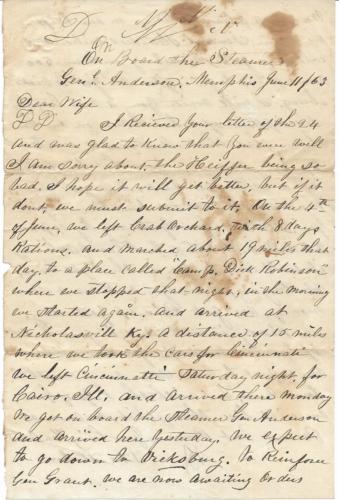 On Board the Steamer
Genl. Anderson, Memphis June 11/63
Dear Wife
I Recieved Your letter of the 24
and was glad to Know that You were well
I am sorry about the Heiffer being so
bad, I hope it will get better, but if it
dont, we must submit to it, On the 4th
of June, we left Crab Orchard, with 8 days
Rations, and Marched about 19 miles that
day, to a place called "Camp Dick Robinson"
when we stopped that night, in the morning
we started again, and arrived at
Nicholasvill Ky. A distance of 15 miles
where we took the cars for Cincinnati
we left Cincinnatti Saturday night, for
Cairo, Ill. and arrived there Monday
We got on board the Steamer Gen Anderson
and arrived here Yesterday, We expect
to go down to Vicksburg. To Reinforce
Gen Grant. we are now awaiting Orders